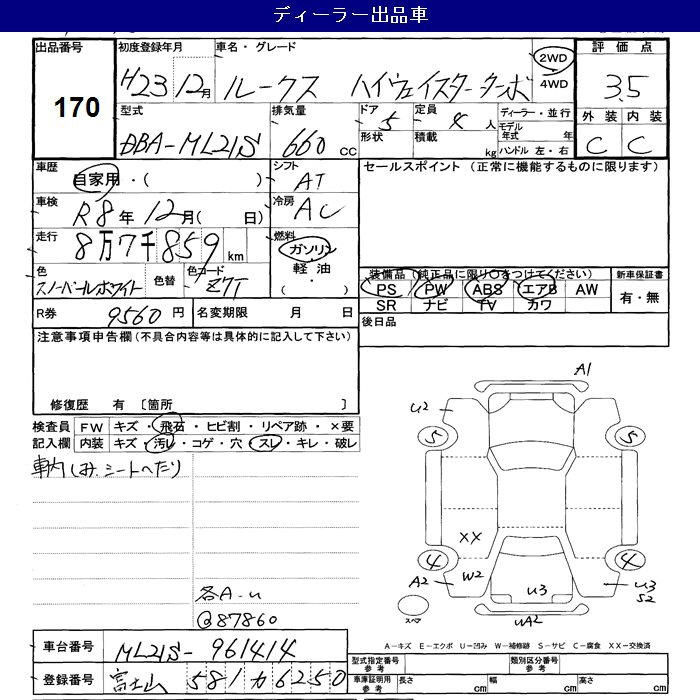 ディーラー出品車
出品番号 170
初度登録年月 H23 12月
車名・グレード ルークス ハイウェイスターターボ
2WD
4WD
評価点 3.5
外装 C 内装 C
型式 DBA-ML21S
排気量 660 CC
ドア 5
形状
定員 4 人
積載 kg
ディーラー・並行
モデル年式 年
ハンドル 左・右
車歴 自家用・( )
シフト AT
車検 R8年12月( 日)
冷房 AC
走行 8万7千859 km
燃料 ガソリン
軽油
・
( )
色 スノーパールホワイト
色替
色コード Z7T
セールスポイント (正常に機能するものに限ります)
装備品(純正品に限り○をつけてください)
PS PW ABS エアB AW
SR ナビ TV カワ
新車保証書
有・無
R券 9560 円
名変期限 月 日
後日品
注意事項申告欄(不具合内容等は具体的に記入して下さい)
修復歴 有 〔箇所 〕
検査員記入欄
FW キズ・飛石・ヒビ割・リペア跡・×要
内装 キズ・汚レ・コゲ・穴・スレ・キレ・破レ
車内しみ、シートへたり
各A-U
@87860
A1
U2
5 5
XX
4 4
A2 W2
U3
U3
S2
UA2
スペア
A－キズ E－エクボ U－凹み W－補修跡 S－サビ C－腐食 XX－交換済
車台番号 ML21S-961414
登録番号 富士山 581 カ 6250
型式指定番号 参考
類別区分番号 参考
車庫証明用 参考 長さ cm 幅 cm 高さ cm